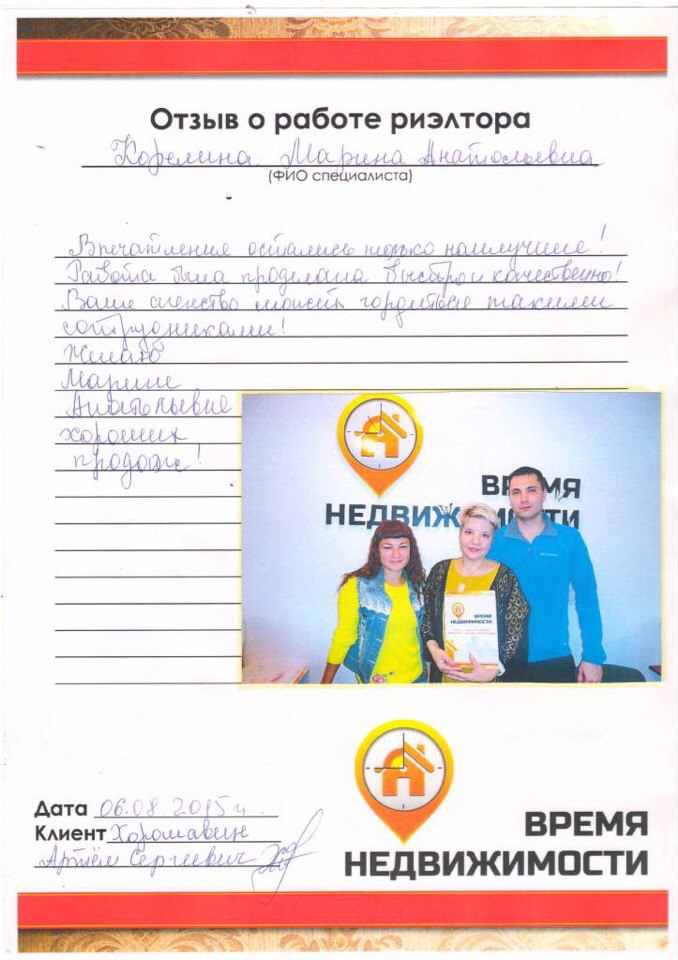 Отзыв о работе риэлтора
Корелина Марина Анатольевна
(ФИО специалиста)
Впечатления остались только наилучшие!
Работа была проделана быстро и качественно!
Ваше агенство может гордиться такими
сотрудниками!
Желаю
Марине
Анатольевне
хороших
продаж!
ВРЕМЯ
НЕДВИЖИМОСТИ
ВРЕМЯ
НЕДВИЖИМОСТИ
Дата 06.08 2015 г.
Клиент Хорошавин
Артём Сергеевич
ВРЕМЯ
НЕДВИЖИМОСТИ